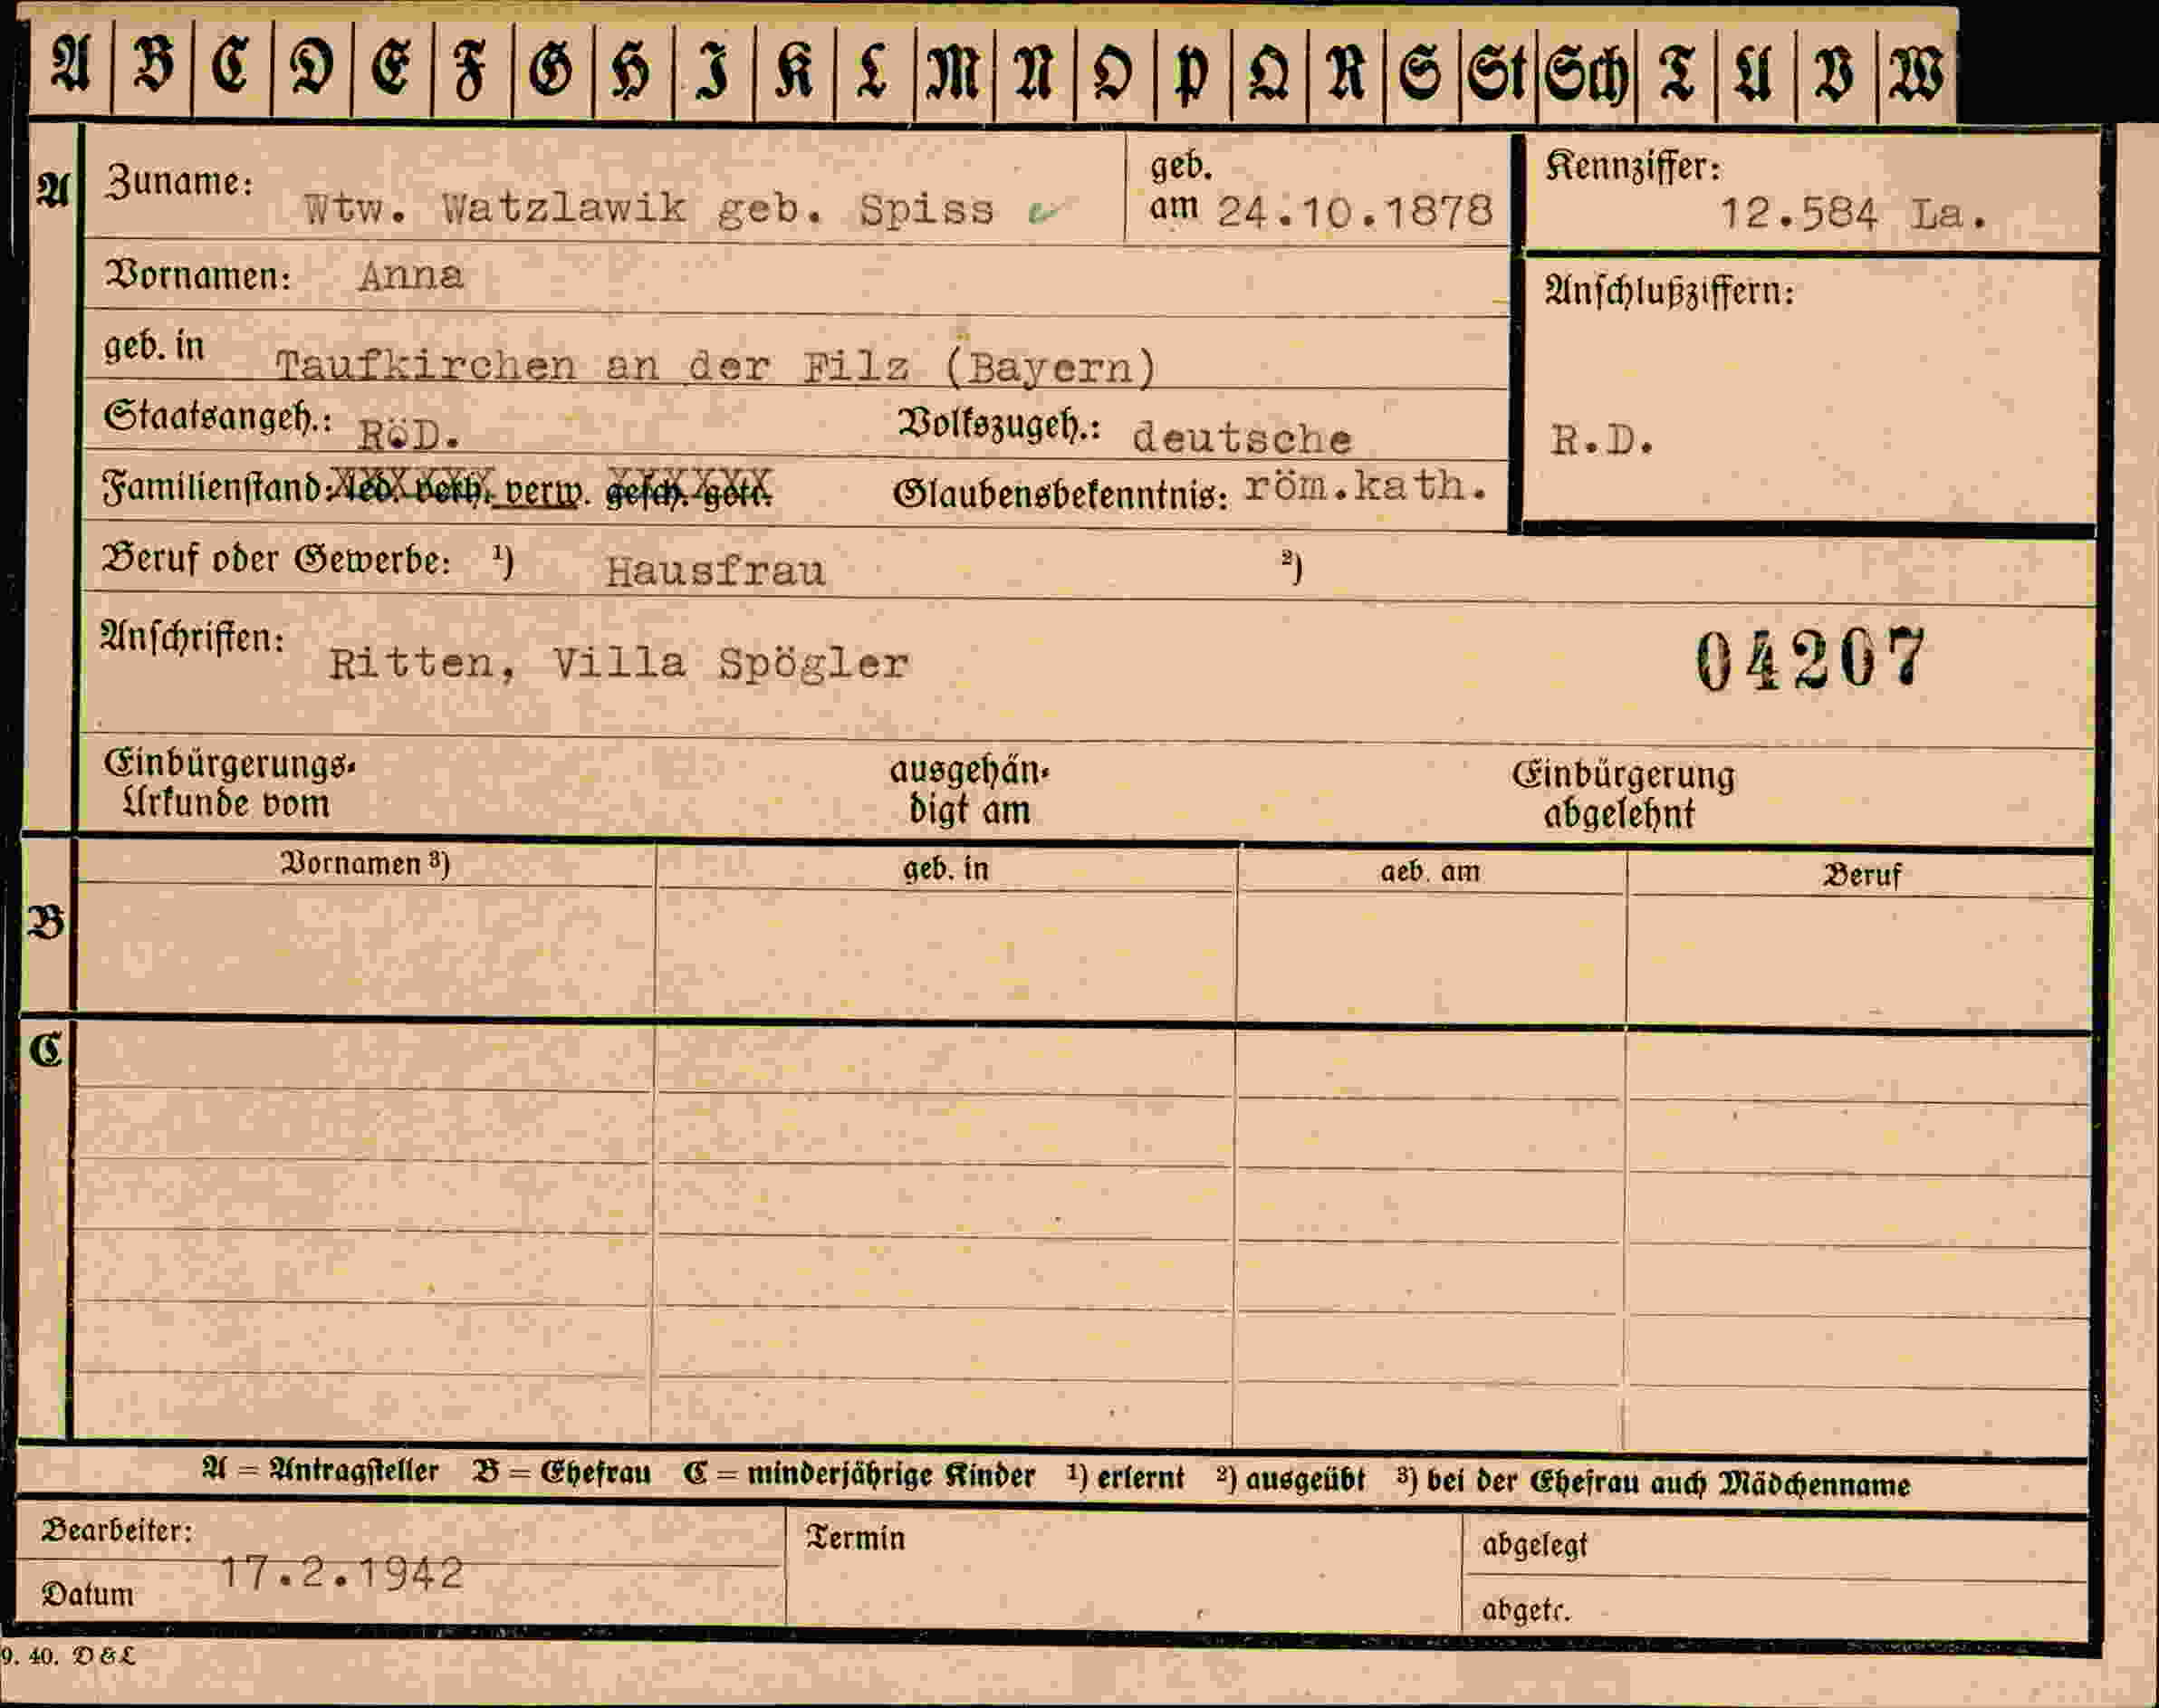 A B C D E F G H I K L M N O P Q R S St Sch T U V W
A Zuname: Wtw. Watzlawik geb. Spiss geb. am 24.10.1878 Kennziffer: 12.584 La.
Vornamen: Anna
Anschlußziffern:
geb. in Taufkirchen an der Filz (Bayern)
Staatsangeh.: RöD. Volkszugeh.: deutsche R.D.
Familienstand: led. verh. verw. gesch. getr. Glaubensbekenntnis: röm.kath.
Beruf oder Gewerbe: ¹) Hausfrau ²)
Anschriften: Ritten, Villa Spögler 04207
Einbürgerungs- ausgehän- Einbürgerung
Urkunde vom digt am abgelehnt
Vornamen ³) geb. in geb. am Beruf
B
C
A = Antragsteller B = Ehefrau C = minderjährige Kinder ¹) erlernt ²) ausgeübt ³) bei der Ehefrau auch Mädchenname
Bearbeiter: Termin abgelegt
Datum 17.2.1942 abgetr.
9. 40. D & L